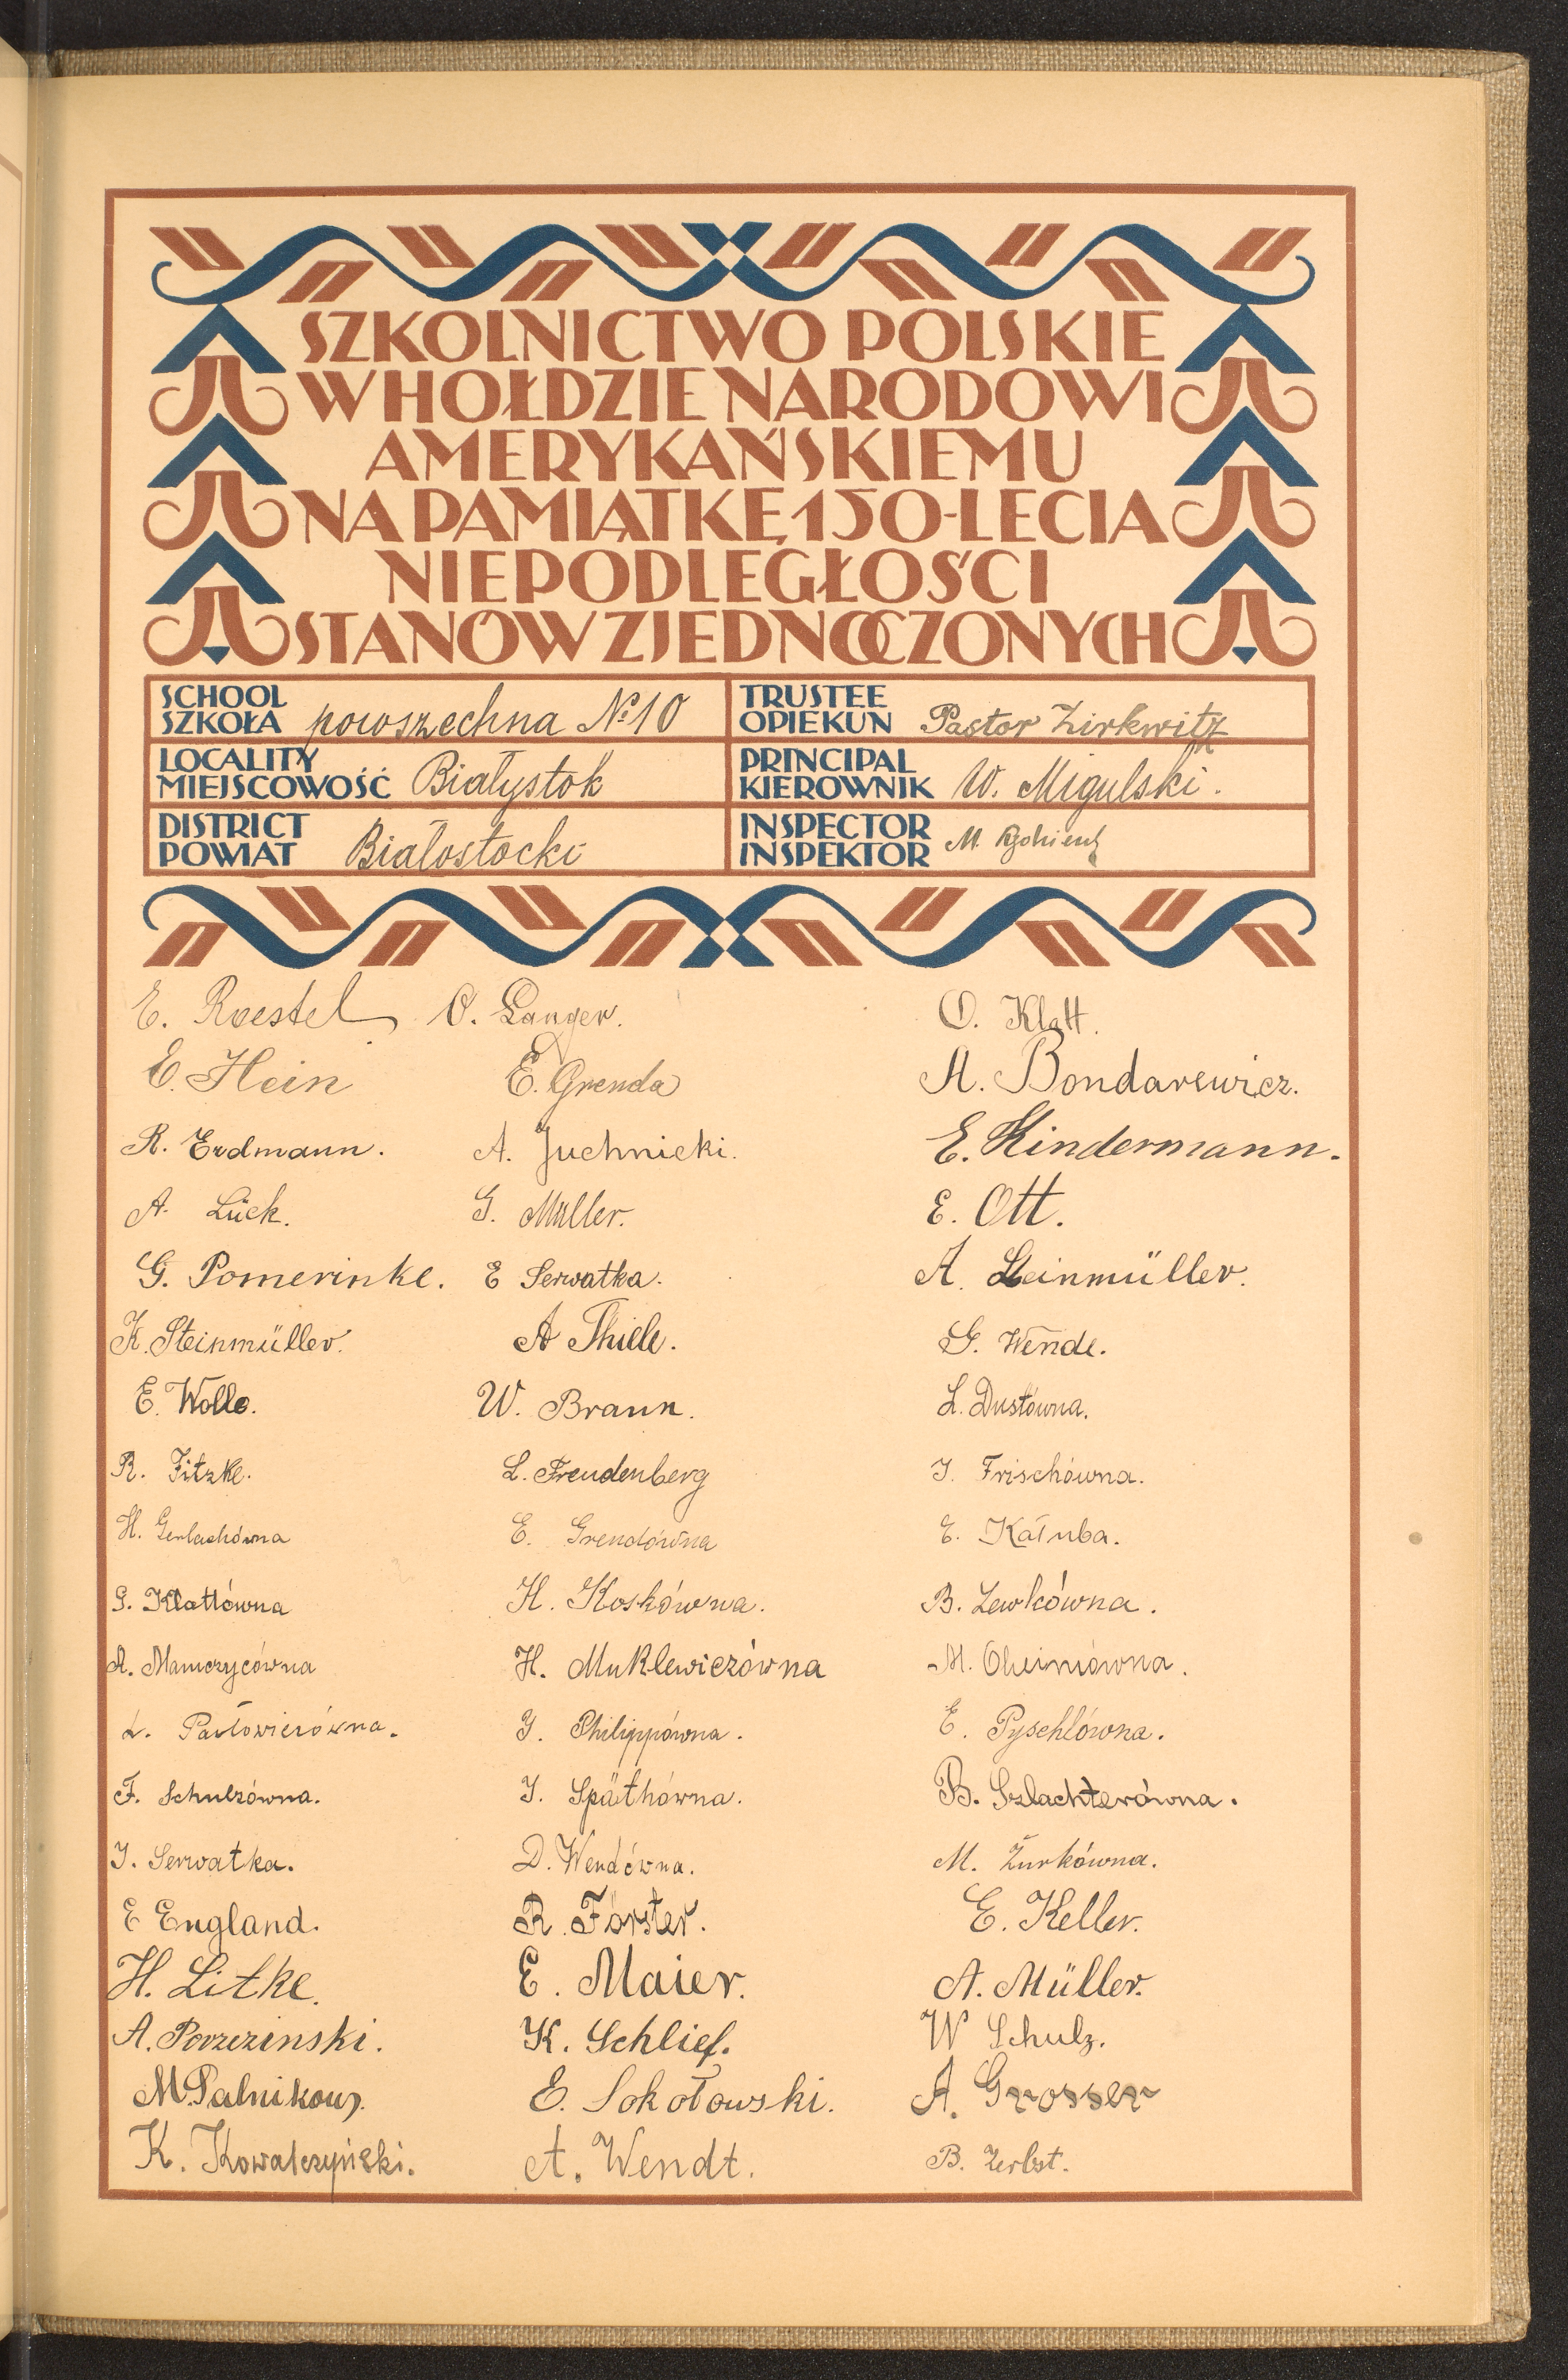 SZKOLNICTWO POLSKIE
W HOŁDZIE NARODOWI
AMERYKAŃSKIEMU
NA PAMIĄTKĘ 150-LECIA
NIEPODLEGŁOŚCI
STANÓW ZJEDNOCZONYCH
SCHOOL
SZKOŁA powszechna № 10
TRUSTEE
OPIEKUN Pastor Zirkwitz
LOCALITY
MIEJSCOWOŚĆ Białystok
PRINCIPAL
KIEROWNIK W. Migulski.
DISTRICT
POWIAT Białostocki
INSPECTOR
INSPEKTOR M.
E. Roestel O. Langer. O. Klatt.
E. Hein E. Grenda A. Bondarewicz.
R. Erdmann. A. Juchnicki. E. Kindermann.
A. Lück. G. Müller. E. Ott.
G. Pomerinke. E Serwatka. A. Steinmüller.
K. Steinmüller. A Thiele. G. Wende.
E. Wolle. W. Braun. L. Dustówna.
R. Fitzke. L. Freudenberg J. Frischówna.
H. Gerlachówna E. Grendówna E. Kałuba.
G. Klattówna H. Koskówna. B. Lewkówna.
A. Mamczycówna H. Muklewiczówna M.
L. J. Philippówna. E. Pyschlówna.
F. Schulzówna. J. Späthówna. B. Szlachterówna.
J. Serwatka. D. Wendówna. M. Żurkówna.
E England. R. Förster. E. Keller.
H. Litke. E. Maier. A. Müller.
A. Porzezinski. K. Schlief. W Schulz.
M. Palnikow. E. Sokołowski. A. Grosser
K. Kowalczyński. A. Wendt. B. Zerbst.